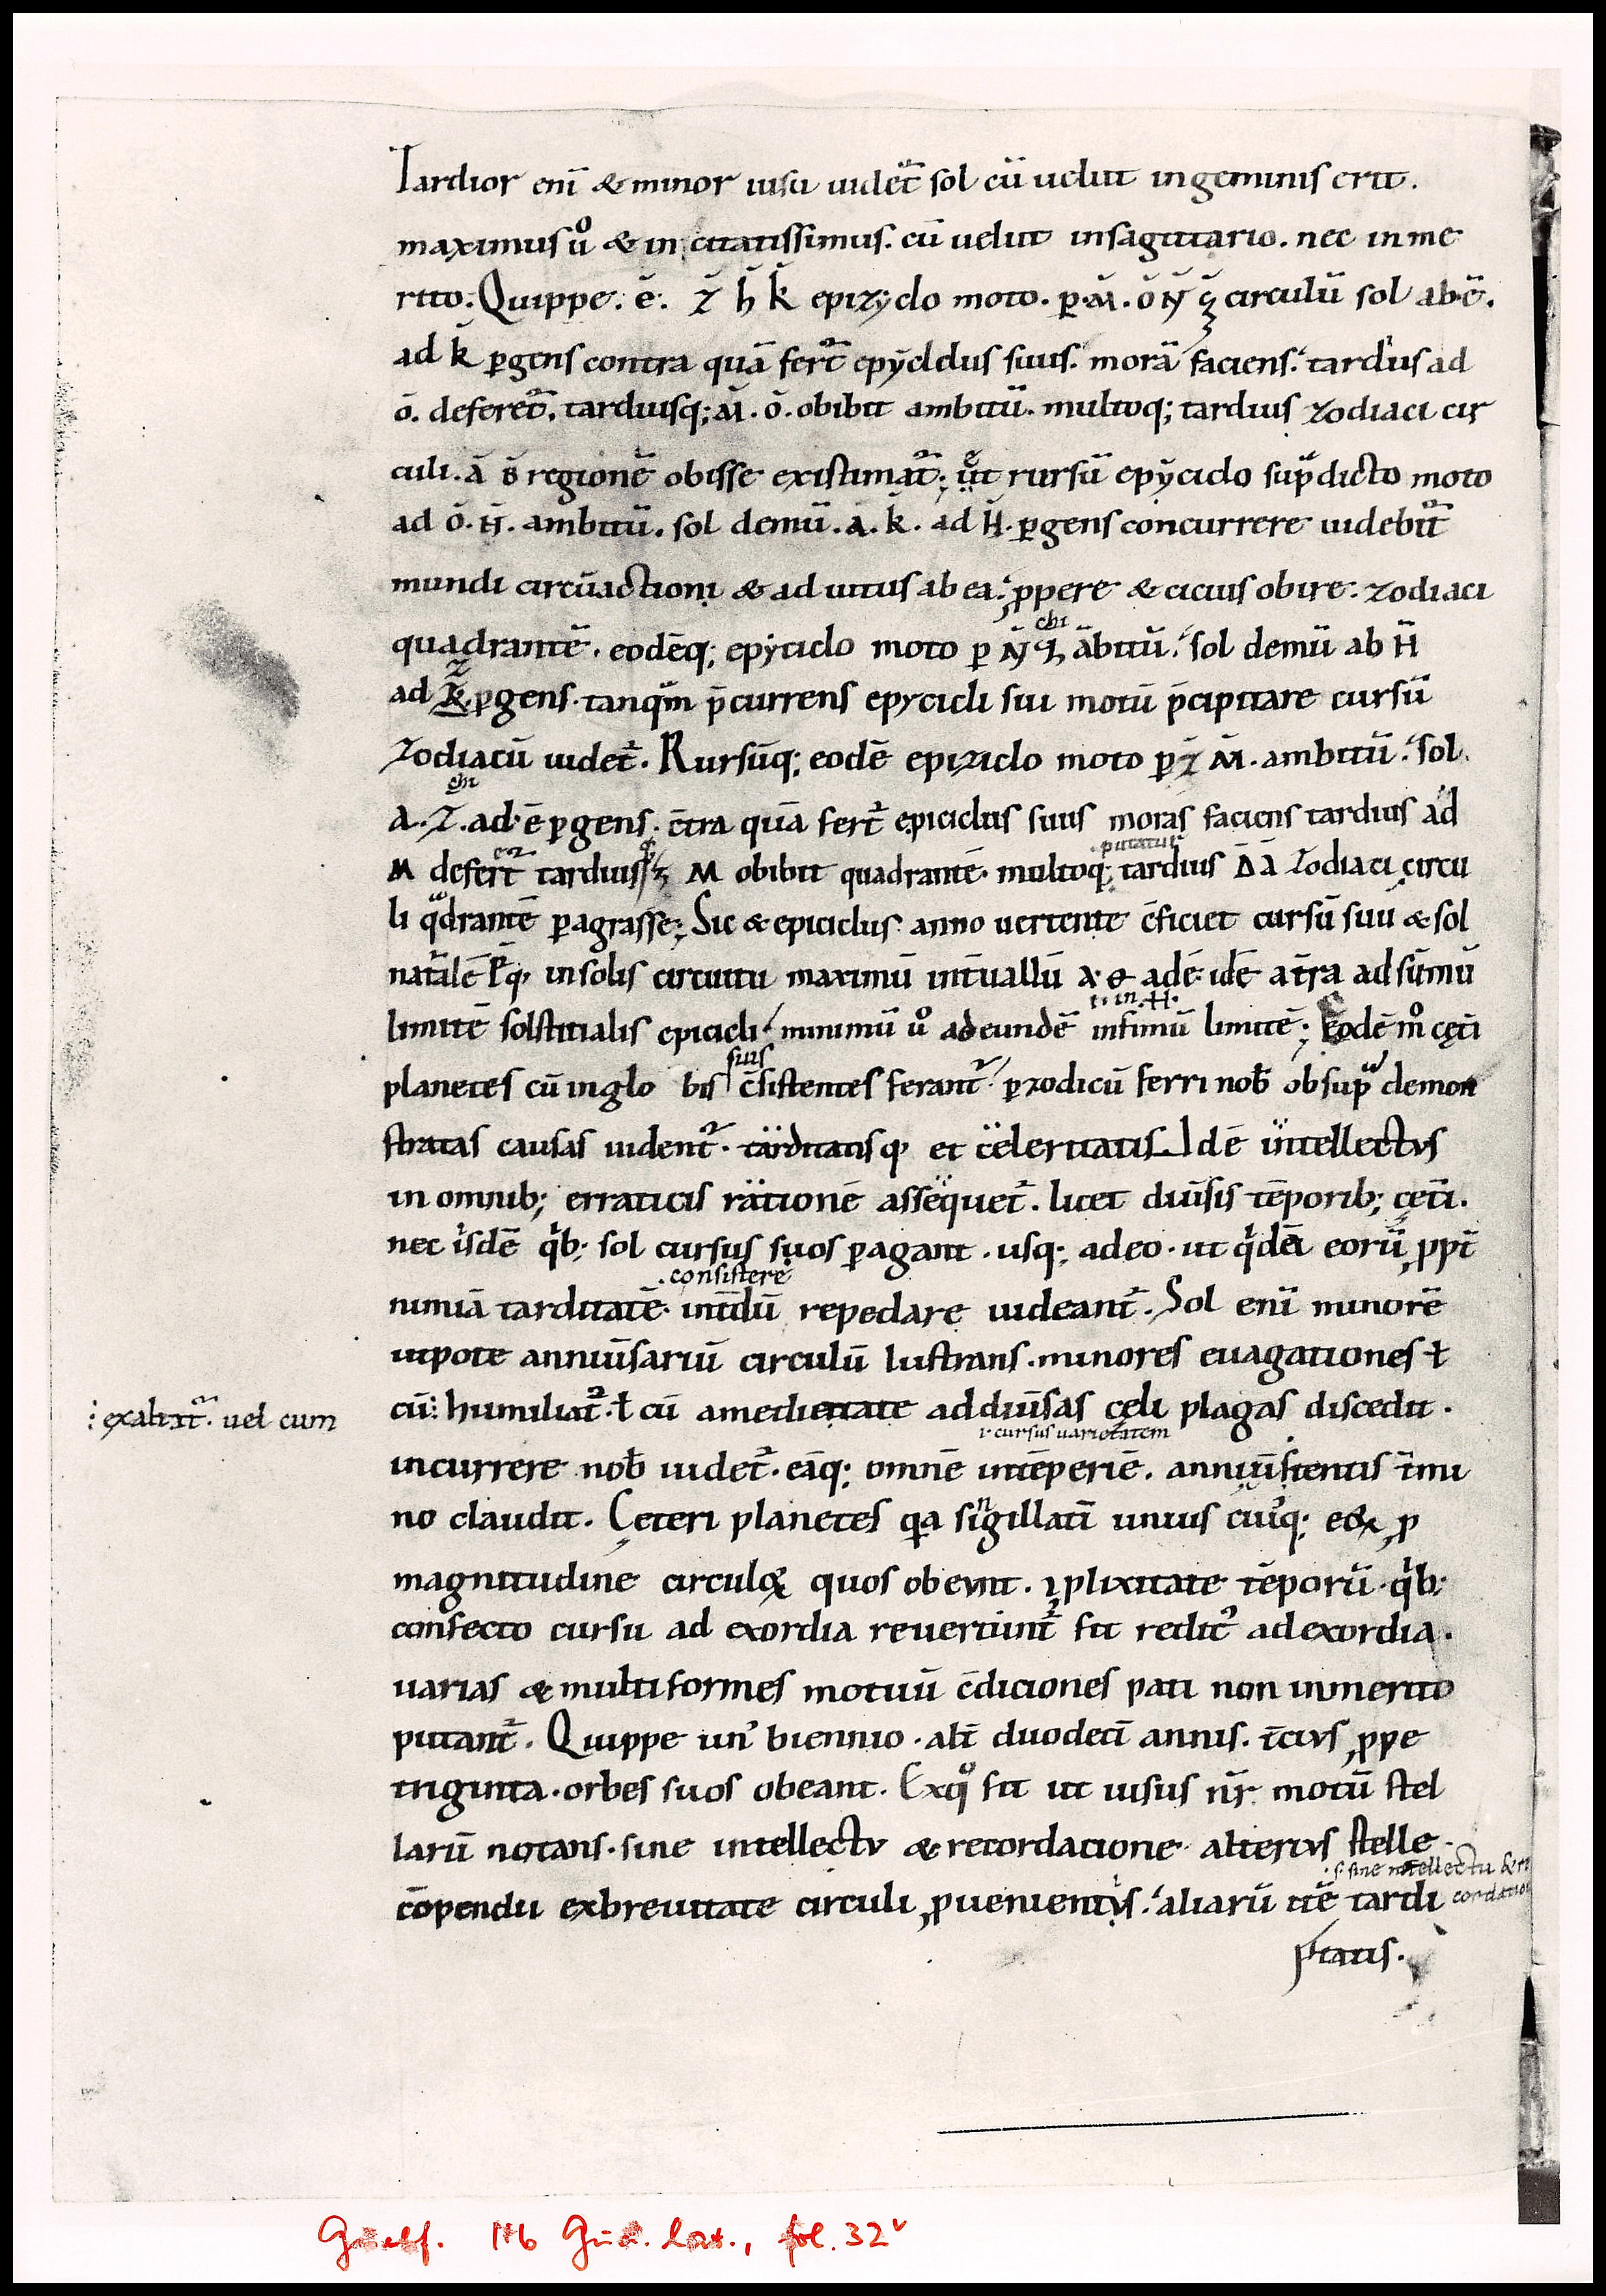 Tardior enī & minor uisu uidet᷑ sol cū uelut in geminis erit.
maximus ů & incitatissimus. cū uelut in sagittario. nec inme
rito. Quippe. ē. z̄ h̄ k̄ epizyclo moto. ꝑ. M̄. ō N̄ circulū sol ab. ē.
ad k̄ ꝑgens contra quā fert᷑ epẏcldus suus. morā faciens. tardius ad
ō. deferet᷑. tardiusq; M̄. ō. obibit ambitū. multoq; tardius zodiaci cir
culi. ā regionē obisse existimat᷑. rursū epẏciclo sup̄dicto moto
ad ō. N̄. ambitū. sol demū. a. k̄. ad H̄. ꝑgens concurrere uidebit᷑
mundi circūactioni & adiutus ab ea. ꝓpere & cicius obire. zodiaci
chi
quadrantē. eodēq; epẏciclo moto ꝑ N̄ ābitū. sol demū ab H̄
ad ꝑgens. tanqͣm p̄currens epycicli sui motū p̄cipitare cursū
zodiacū uidet᷑. Rursūq; eodē epiziclo moto ꝑ z̄ M̄. ambitū. sol
a. z. ad ē ꝑgens. c̄tra quā fert᷑ epiciclus suus moras faciens tardius ad
putatur
M defert᷑ tardius M obibit quadrantē. multoq; tardius Δ̄ ā zodiaci circu
li qͣdrantē ꝑagrasse; Sic & epiciclus anno uertente c̄ficiet cursū suū & sol
natͣlē in solis circuitu maximū int̄uallū a. adē. idē at̄ra ad sūmū
i. in. H.
limitē solstitialis epicicli. minimū ů ad eundē infimū limitē; Eodē mͦ cęt̄i
suis
planetes cū inglo bis c̄sistentes ferant᷑. ꝑ zodicū ferri nob̄ ob sup̄ͣ demon
stratas causas uident᷑. tarditatisq, et celeritatis Idē intellectus
in omnib; erraticis rationē assequet᷑. licet diūsis tēporib; cęt̄i.
nec iisdē qͥb; sol cursus suos ꝑagant. usq; adeo. ut qͥdā eorū ꝓpt̄
.consistere
nimiā tarditatē. int̄dū repedare uideant᷑. Sol enī minorē
utpote anniūsariū circulū lustrans. minores euagationes ł
∴ exaltat᷑. uel cum
cū∴ humiliat᷑. ł cū a medietate ad diūsas cęli plagas discedit.
i. cursus uarietatem
incurrere nob̄ uidet᷑. eāq; omnē intēperiē. anni t̄mi
no claudit. Ceteri planetes qͥa singillatī unius cuiꝰq; eoꝝ ꝓ
magnitudine circuloꝝ quos obeunt. ꝓlixitate tēporū. qͥb;
confecto cursu ad exordia reuertunt᷑ fit reditꝰ ad exordia.
uarias & multiformes motuū c̄diciones pati non inmerito
putant᷑. Quippe unꝰ biennio. alt̄ duodecī annis. t̄cius ꝓpe
triginta. orbes suos obeant. Ex qͦ fit ut uisus nr̄. motū stel
larū notans. sine intellectu & recordatione alterius stelle
.s. sine intellectu & re
cordation
cōpendii ex breuitate circuli ꝓuenientis. aliarū itē tardi
tatis.
Guelf. 116 Gud. lat., fol. 32ᵛ